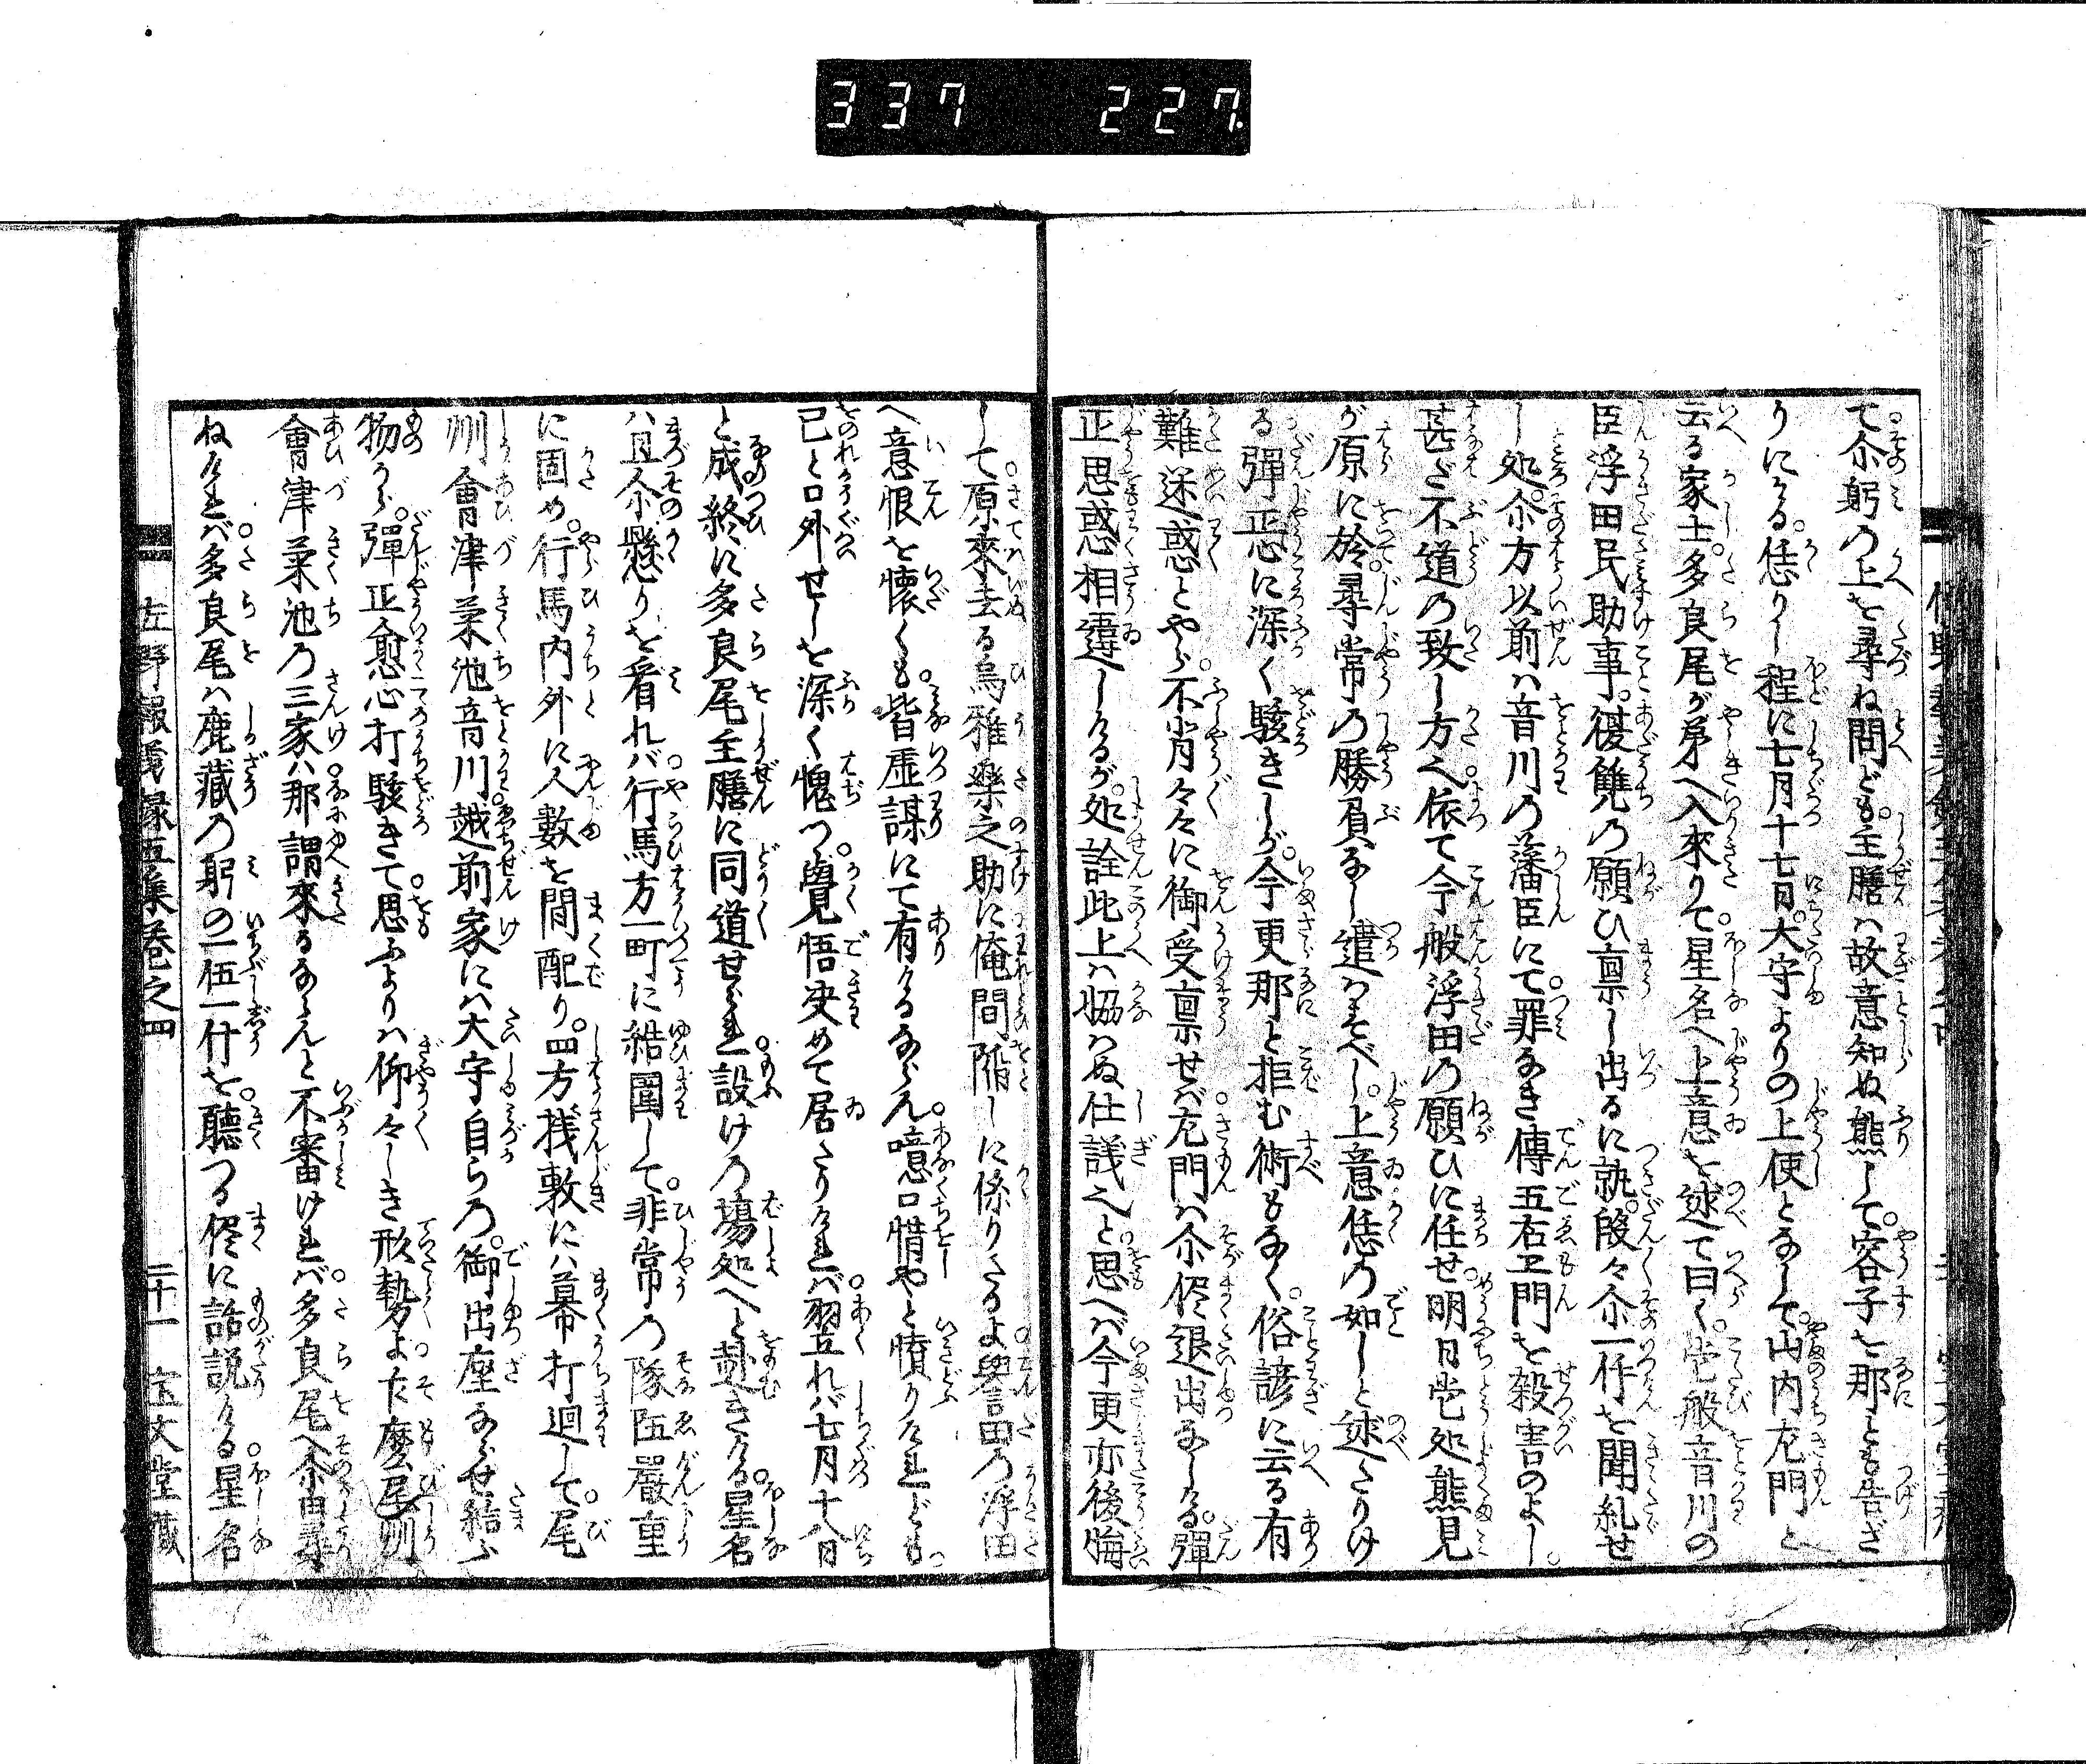 337 227.
て尒躬の上を尋ね問ども。主膳ハ故意知ぬ態して。容子を那とも告ざ
りにける。恁りし程に七月十七日。大守よりの上使となして。山内左門と
云る家士。多良尾が第へ入來りて。星名へ上意を述て曰く。這般音川の
臣浮田民助事。復讐の願ひ稟し出るに就。段々尒一件を聞糺せ
し処。尒方以前ハ音川の藩臣にて。罪なき傳五右エ門を殺害のよし。
甚だ不道の致し方へ。依て今般浮田の願ひに任せ。明日這処熊見
が原に於。尋常の勝負なし遣ハすべし。上意恁の如しと述たりけ
る。彈正忿に深く駭きしが。今更那と拒む術もなく。俗諺に云る有
難迷惑とやら。不肖々々に御受稟せバ。左門ハ尒儘退出なしける。彈
正思惑相違しけるが。処詮此上ハ協ハぬ仕議へと。思へバ今更亦後悔
して。原來去る烏雅樂之助に俺間隔しに係りたるよ。譽田の浮田
へ意恨を懐くも。皆虚謀にて有けるならん。噫口惜やと憤りけれども。
己と口外せしを深く愧つ。覺悟决めて居たりけれバ。翌れバ七月十八日
と成。終に多良尾主膳に同道せられ。設けの場処へと赴きける。星名
ハ且尒懸りを看れバ。行馬方一町に結圍して。非常の隊伍嚴重
に固め。行馬内外に人數を間配り。四方棧敷にハ幕打迴して。尾
州會津菊池音川越前家にハ大守自らの。御出座ならせ給ふ
物から。彈正愈心打駭きて。思ふよりハ仰々しき形勢よ。什麼尾州
會津菊池の三家ハ。那謂來るならんと。不審けれバ。多良尾へ尒由尋
ねけれバ。多良尾ハ鹿藏の躬の一伍一什を。聽つる儘に話説りける。星名
左野報讐録五集巻之四 二十一 宝文堂藏